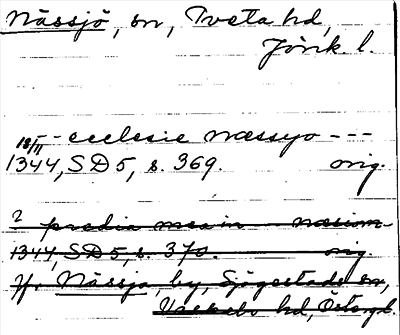 Nässjö, sn, Tveta hd,
Jönk. l.
18/11 - - ecclesie næssyo - - -
1344, SD 5, s. 369. orig.
? predia mea in næsiom
1344, SD 5, s. 370. orig.
Nässja, by, Sjögestads sn,
Valkebo hd, Östergl.